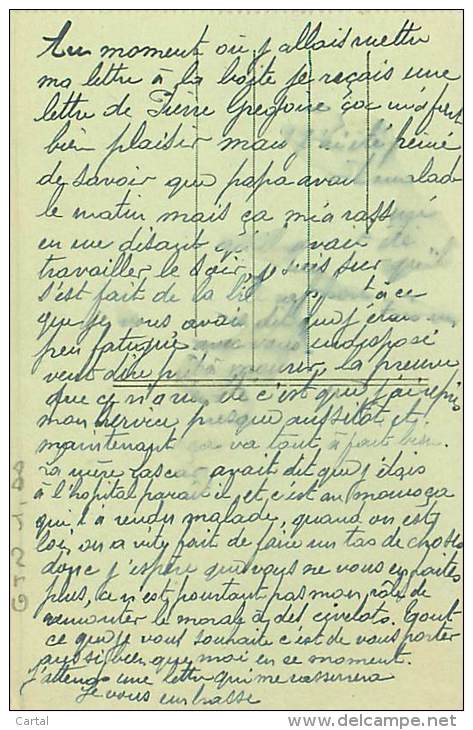 Au moment où j'allais mettre
ma lettre à la boîte je reçais une
lettre de Pierre Gregoire ça m'a fait
bien plaisir mais j'ai été peiné
de savoir que papa avait malade
le matin mais ça m'a rassuré
en me disant qu'il avait été
travailler le soir, je suis sur qu'il
s'est fait de la bile à ce
que je vous avais dit que j'étais un
peu fatigué indisposé
veut dire mourir, la preuve
que ce n'a c'est que j'ai repris
mon service presque aussitot et
maintenant ça va tout à fait bien.
La mère avait dit que j'étais
à l'hopital parait il et c'est au moins ça
qui l'a rendu malade, quand on est
loi, on a vite fait de faire un tas de choses
donc j'espère que vous ne vous en faites
plus, ce n'est pourtant pas mon rôle de
remonter le morale à des civelots. Tout
ce que je vous souhaite c'est de vous porter
aussi bien que moi en ce moment.
J'attends une lettre qui me rassurera
Je vous embrasse
G52 J_08
Cartal
www.delcampe.net